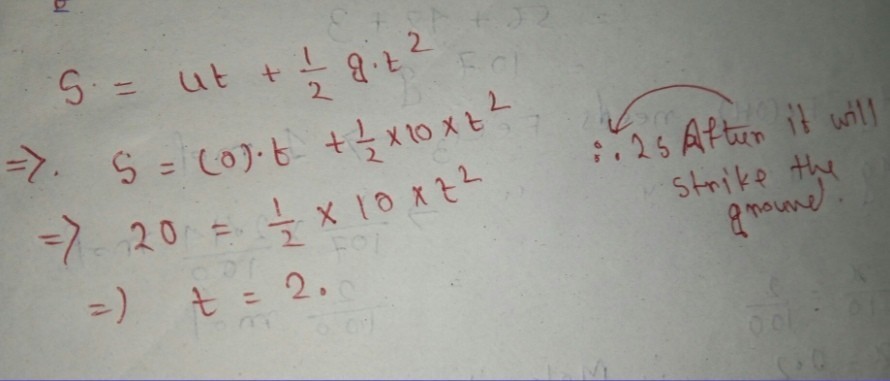 S = ut + 1/2 g.t²
=>. S = (0).t + 1/2 x 10 x t²
=> 20 = 1/2 x 10 x t²
=) t = 2.
∴ 2s After it will
strike the
ground.